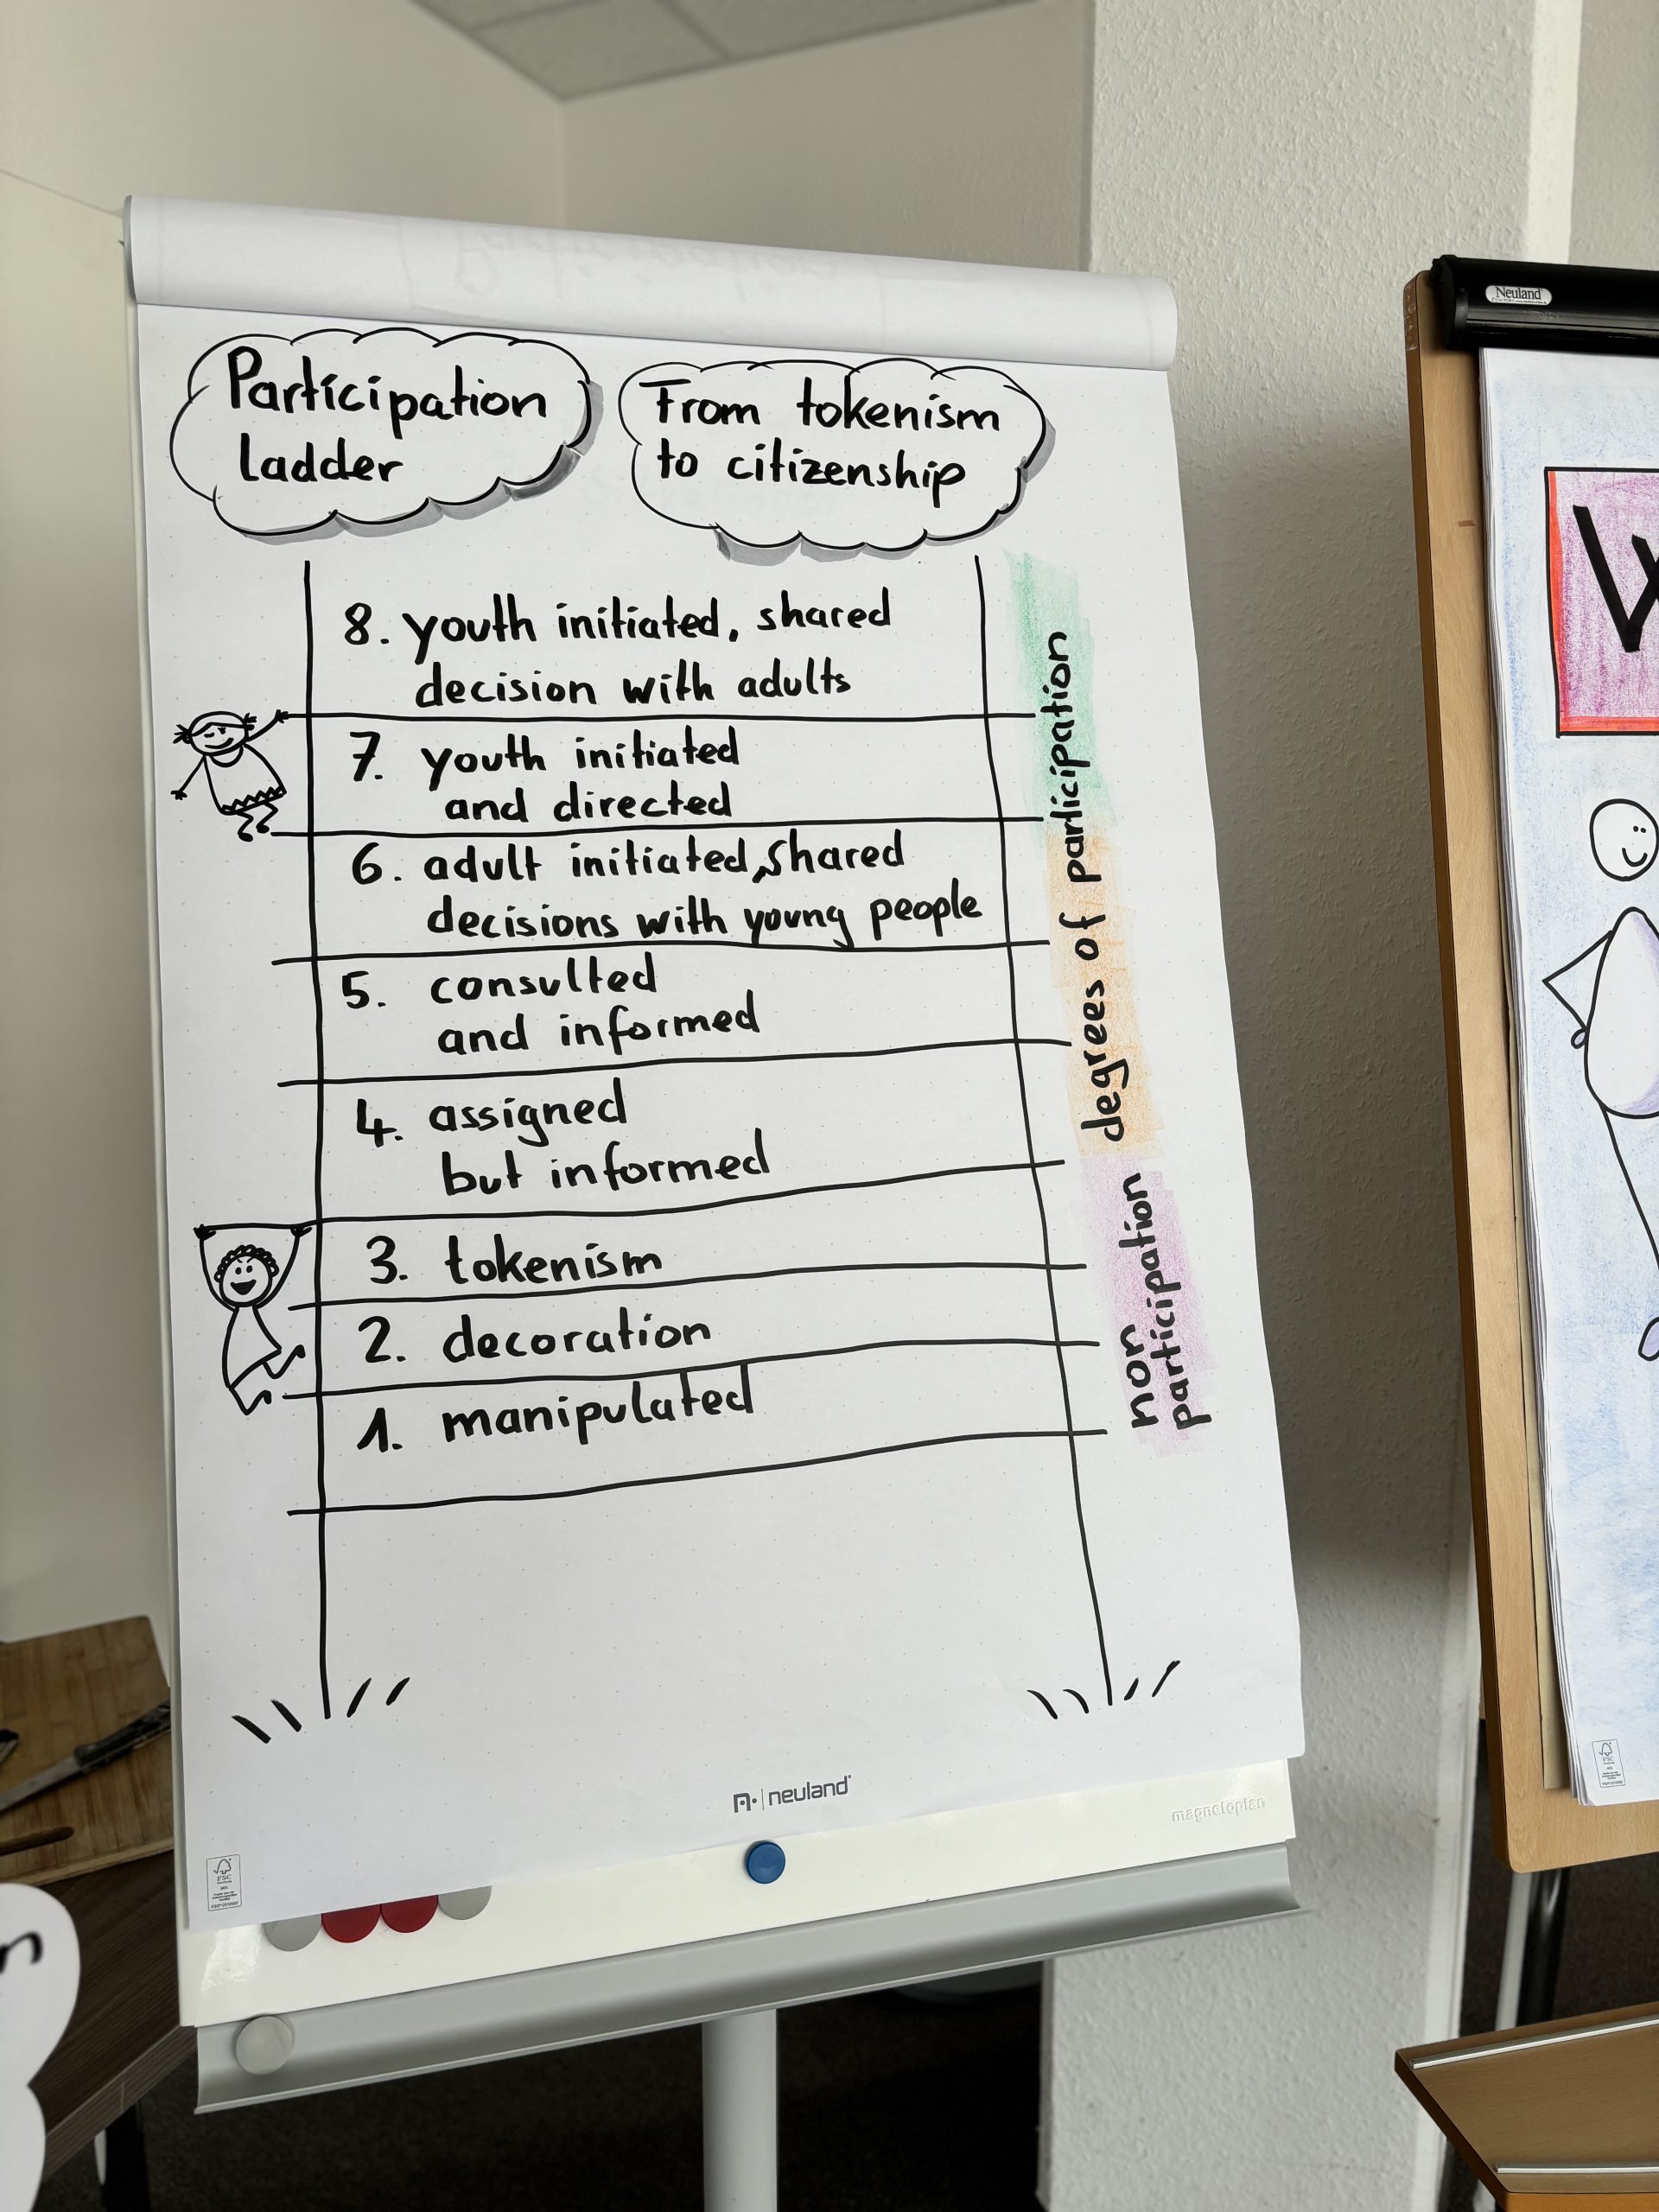 Participation
ladder
From tokenism
to citizenship
8. youth initiated, shared
decision with adults
7. youth initiated
and directed
6. adult initiated, shared
decisions with young people
5. consulted
and informed
4. assigned
but informed
3. tokenism
2. decoration
1. manipulated
degrees of participation
non
participation
neuland
magnetoplan
FSC
Neuland
W
FSC